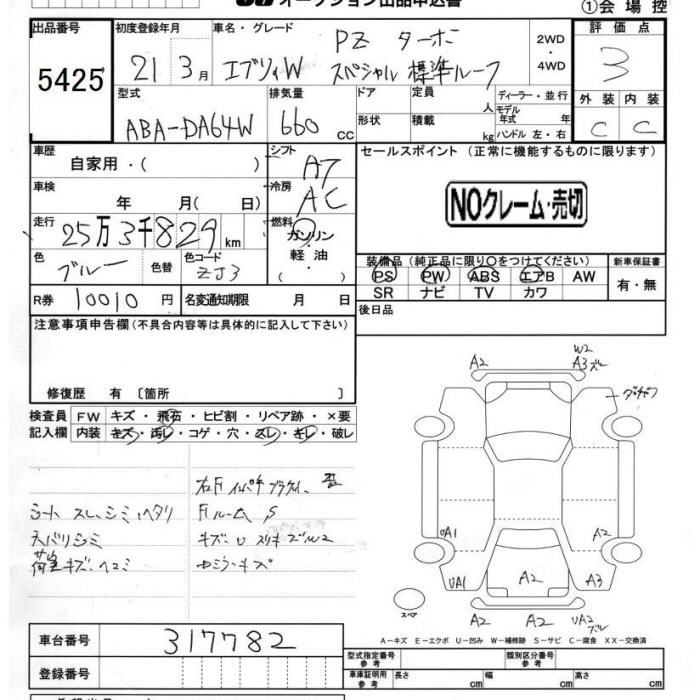 オークション出品申込書
①会場控
出品番号 5425
初度登録年月 21 3月
車名・グレード エブリィW PZ ターボ スペシャル 標準ルーフ
2WD・4WD
評価点 3
外装 内装
C C
型式 ABA-DA64W
排気量 660 CC
ドア 定員 人
形状 積載 kg
ディーラー・並行
モデル年式 年
ハンドル 左・右
車歴 自家用・( )
シフト A7
セールスポイント (正常に機能するものに限ります)
車検 年 月( 日)
冷房 AC
NOクレーム・売切
走行 25万3千829km
燃料 ガソリン・軽油・( )
色 ブルー 色替 色コード ZJ3
装備品(純正品に限り○をつけてください)
新車保証書
PS PW ABS エアB AW
有・無
SR ナビ TV カワ
R券 10010円
名変通知期限 月 日
後日品
注意事項申告欄(不具合内容等は具体的に記入して下さい)
修復歴 有 [箇所 ]
検査員 FW キズ・飛石・ヒビ割・リペア跡・×要
記入欄 内装 キズ・汚レ・コゲ・穴・スレ・キレ・破レ
シート スレ、シミ、ヘタリ
天バリシミ
荷室キズ・ヘコミ
ルーム S
キズ U スリキズ W2
A2
W2
A3 ズレ
UA1
A2
UA1
A2
A3
スペア
A2
A2
UA2
ズレ
A-キズ E-エクボ U-凹み W-補修跡 S-サビ C-腐食 XX-交換済
車台番号 317782
型式指定番号 参考
類別区分番号 参考
登録番号
車庫証明用 参考 長さ cm 幅 cm 高さ cm